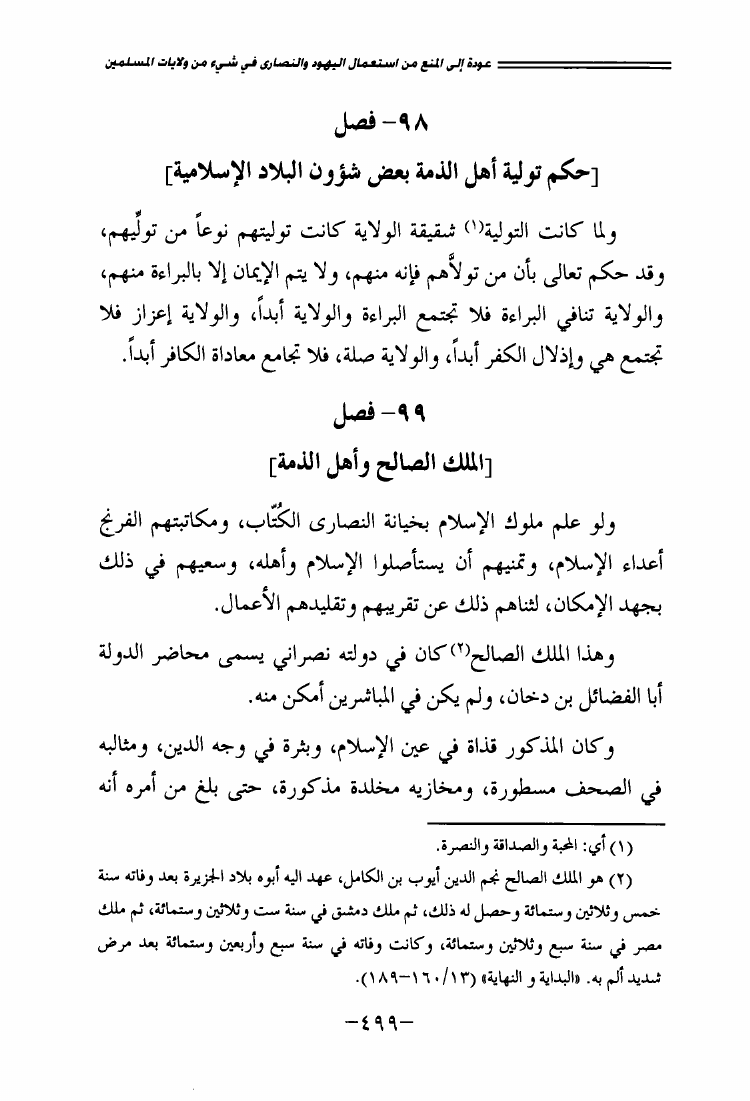 عودة إلى المنع من استعمال اليهود والنصارى في شيء من ولايات المسلمين
٩٨- فصل
[حكم تولية أهل الذمة بعض شؤون البلاد الإسلامية]
ولما كانت التولية(١) شقيقة الولاية كانت توليتهم نوعاً من تولِّيهم،
وقد حكم تعالى بأن من تولاَّهم فإنه منهم، ولا يتم الإيمان إلا بالبراءة منهم،
والولاية تنافي البراءة فلا تجتمع البراءة والولاية أبداً، والولاية إعزاز فلا
تجتمع هي وإذلال الكفر أبداً، والولاية صلة، فلا تجامع معاداة الكافر أبداً.
٩٩- فصل
[الملك الصالح وأهل الذمة]
ولو علم ملوك الإسلام بخيانة النصارى الكُتَّاب، ومكاتبتهم الفرنج
أعداء الإسلام، وتمنيهم أن يستأصلوا الإسلام وأهله، وسعيهم في ذلك
بجهد الإمكان، لثناهم ذلك عن تقريبهم وتقليدهم الأعمال.
وهذا الملك الصالح(٢) كان في دولته نصراني يسمى محاضر الدولة
أبا الفضائل بن دخان، ولم يكن في المباشرين أمكن منه.
وكان المذكور قذاة في عين الإسلام، وبثرة في وجه الدين، ومثالبه
في الصحف مسطورة، ومخازيه مخلدة مذكورة، حتى بلغ من أمره أنه
(١) أي: المحبة والصداقة والنصرة.
(٢) هو الملك الصالح نجم الدين أيوب بن الكامل، عهد اليه أبوه بلاد الجزيرة بعد وفاته سنة
خمس وثلاثين وستمائة وحصل له ذلك، ثم ملك دمشق في سنة ست وثلاثين وستمائة، ثم ملك
مصر في سنة سبع وثلاثين وستمائة، وكانت وفاته في سنة سبع وأربعين وستمائة بعد مرض
شديد ألم به. «البداية و النهاية» (١٣/ ١٦٠-١٨٩).
-٤٩٩-